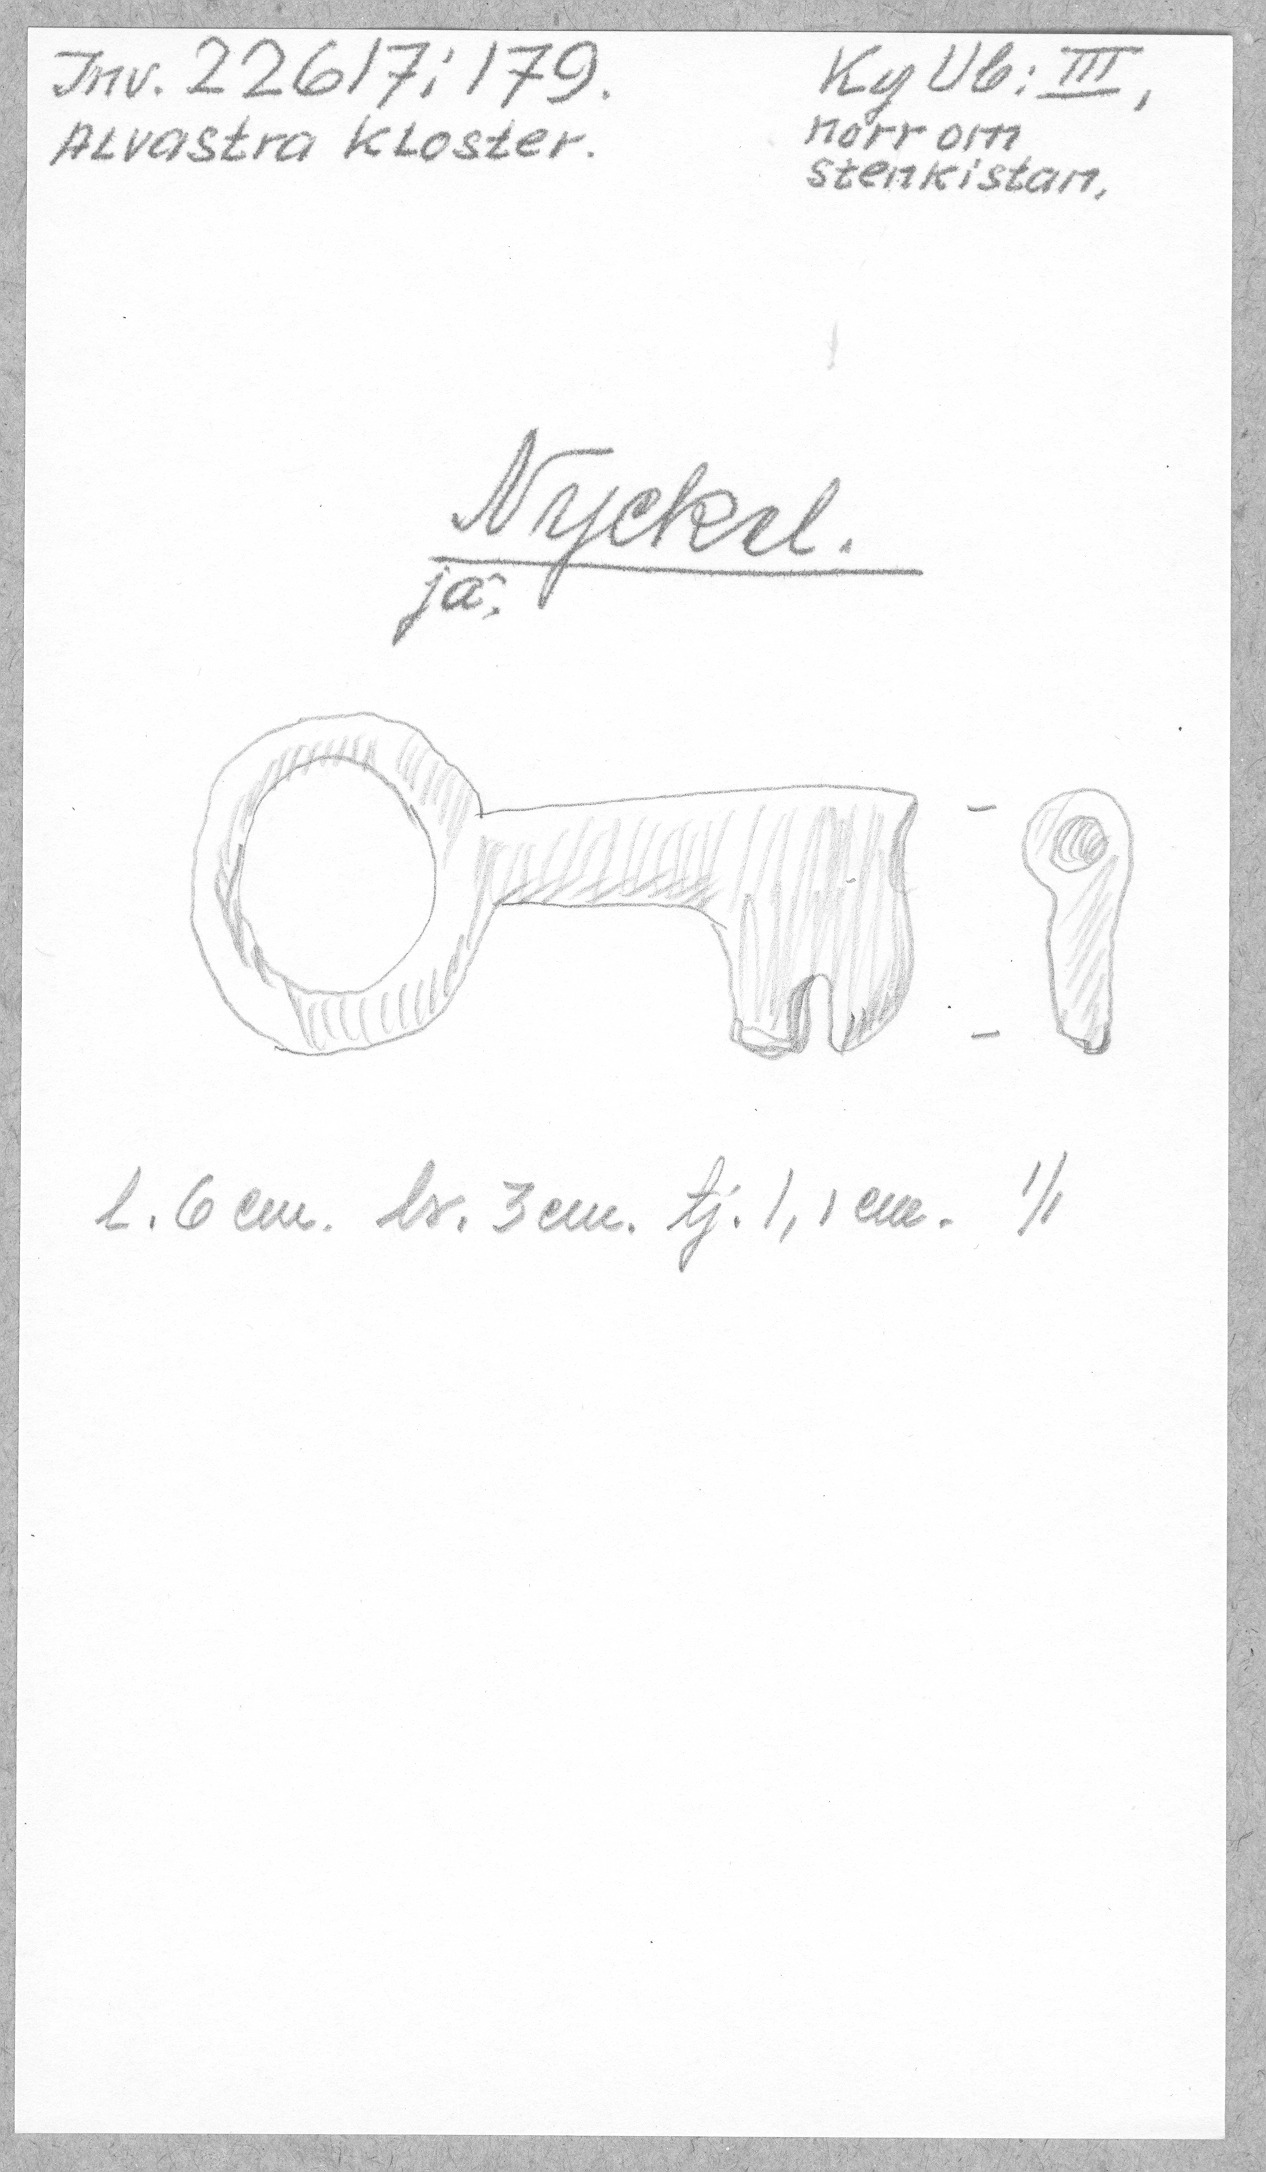 Inv. 22617:179.
Alvastra Kloster.
Ky Ub: III,
norr om
stenkistan.
Nyckel.
jä.
l. 6 cm. br. 3 cm. tj. 1,1 cm. 1/1